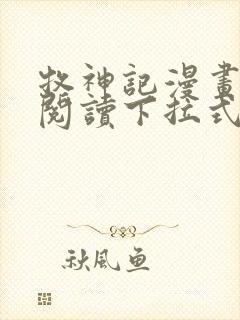 牧神記漫畫
閱讀下拉式
秋風魚